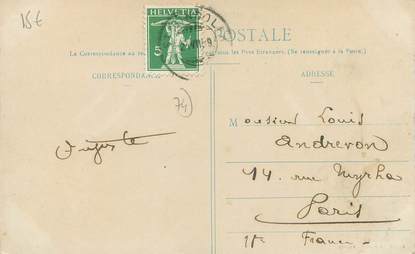 15€
HELVETIA
5
POSTALE
La Correspondance au
tous les Pays Etrangers. (Se renseigner à la Poste.)
CORRESPONDANCE
ADRESSE
74
Auguste
Monsieur Louis
Andrevon
14. rue Myrha
Paris
France